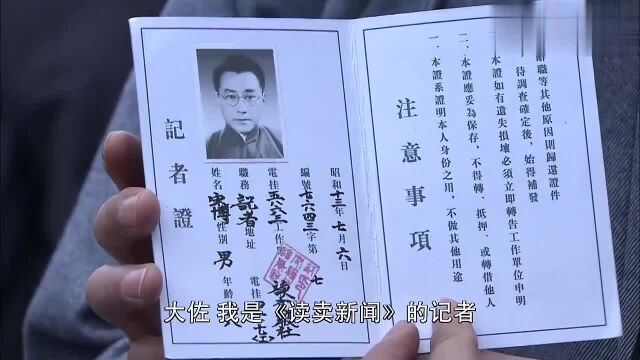 記者證
姓名
性别 男
年齡
職務 記者
地址
電挂 五八六二
工作單
編號七六四三字第 七
昭和十三年七月六日
注意事項
一、本證系證明本人身份之用，不做其他用途
二、本證應妥為保存，不得轉、抵押、或轉借他人
本證如有遺失損壞必須立即轉告工作單位申明
待調查確定後，始得補發
辭職等其他原因則歸還證件
大佐 我是《读卖新闻》的记者